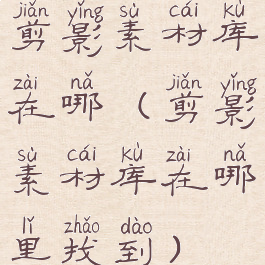 jiǎn yǐng sù cái kù
剪影素材库
zài nǎ jiǎn yǐng
在哪（剪影
sù cái kù zài nǎ
素材库在哪
lǐ zhǎo dào
里找到）